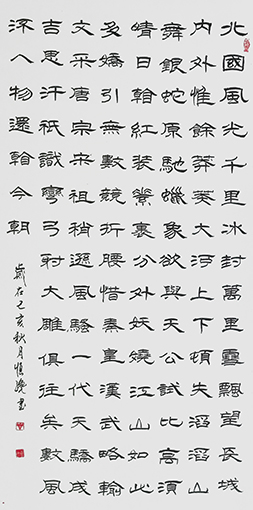 北國風光千里冰封萬里雪飄望長城
内外惟餘莽莽大河上下頓失滔滔山
舞銀蛇原馳蠟象欲與天公試比高須
晴日看紅裝素裹分外妖嬈江山如此
多嬌引無數競折腰惜秦皇漢武略輸
文采唐宗宋祖稍遜風騷一代天驕成
吉思汗祇識彎弓射大雕俱往矣數風
流人物還看今朝
歲在己亥秋月書